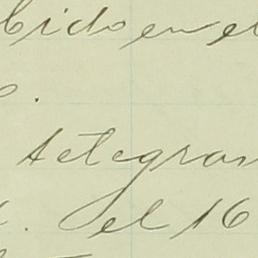 bido en el
telegram
el 16